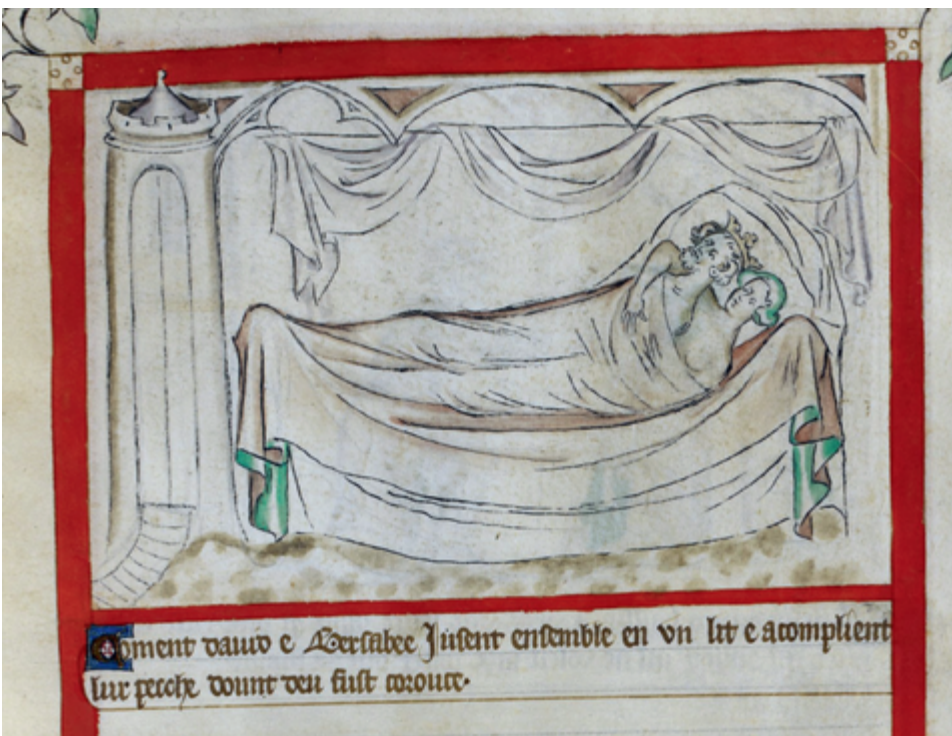 Coment dauid e Bersabee Jusent ensemble en vn lit e acomplient
lur pecche dount deu fust coroute.